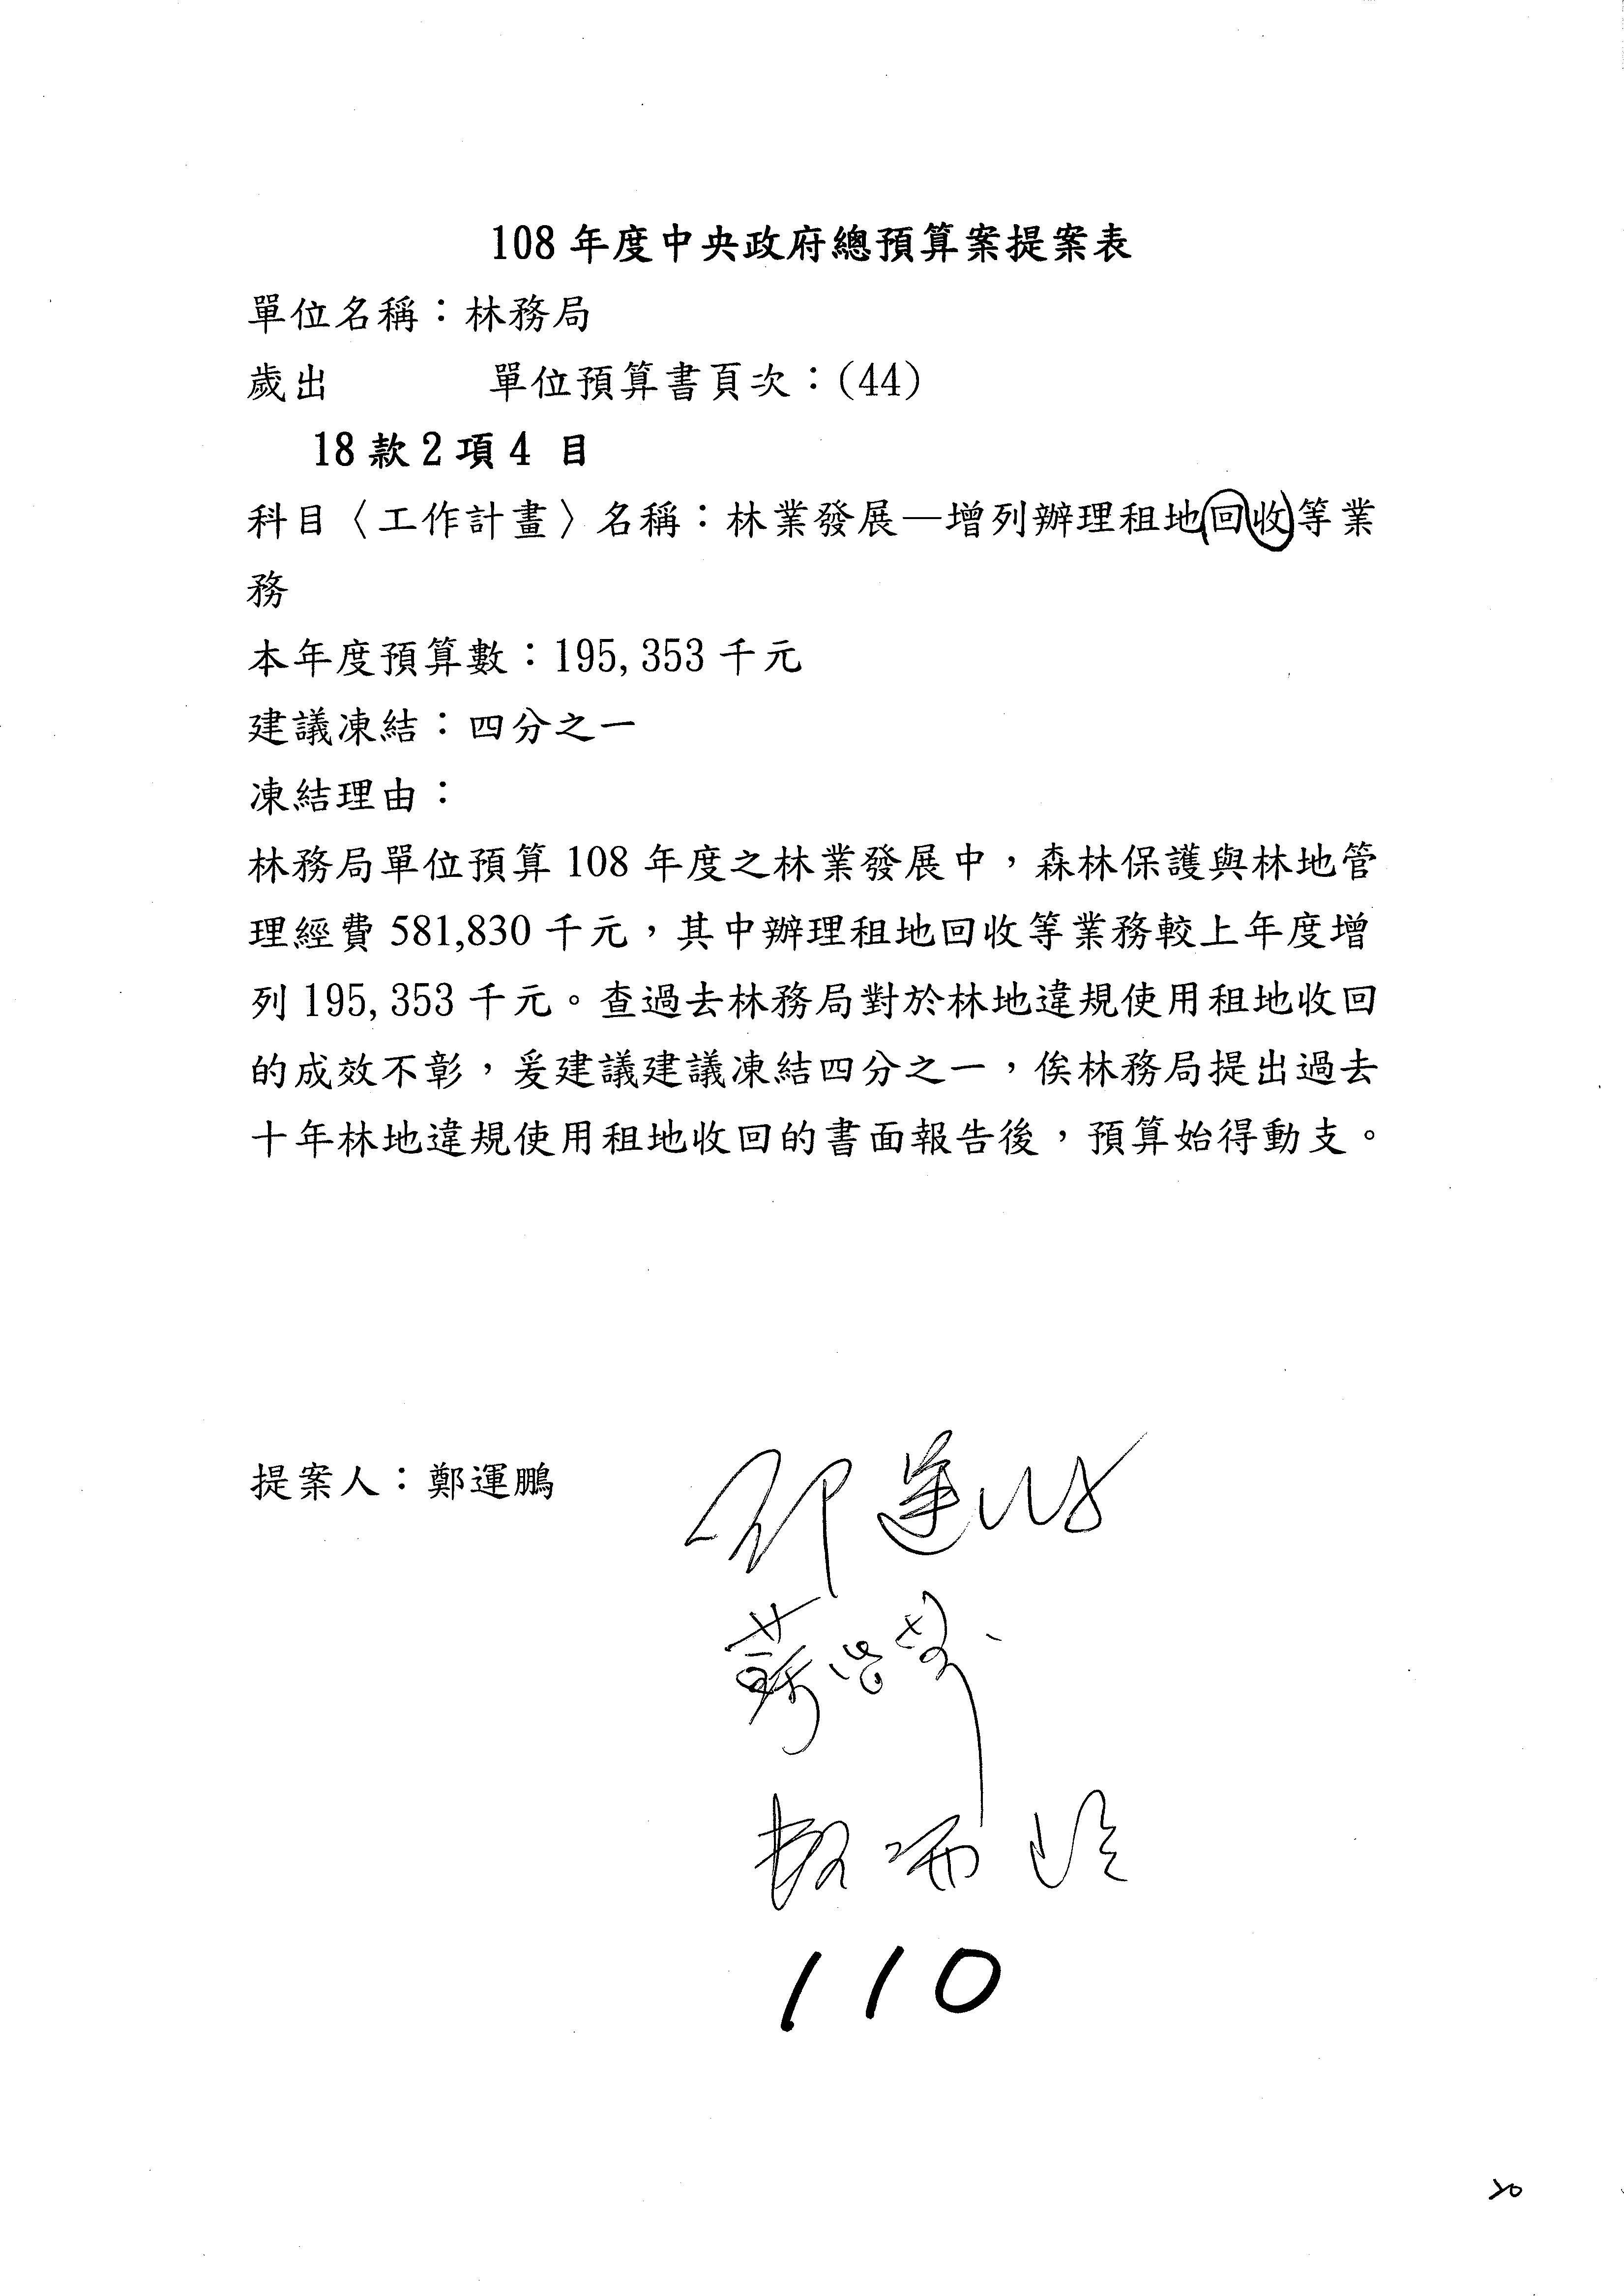 108 年度中央政府總預算案提案表
單位名稱：林務局
歲出 單位預算書頁次：(44)
18 款 2 項 4 目
科目〈工作計畫〉名稱：林業發展—增列辦理租地回收等業
務
本年度預算數：195,353 千元
建議凍結：四分之一
凍結理由：
林務局單位預算 108 年度之林業發展中，森林保護與林地管
理經費 581,830 千元，其中辦理租地回收等業務較上年度增
列 195,353 千元。查過去林務局對於林地違規使用租地收回
的成效不彰，爰建議建議凍結四分之一，俟林務局提出過去
十年林地違規使用租地收回的書面報告後，預算始得動支。
提案人：鄭運鵬
110
20